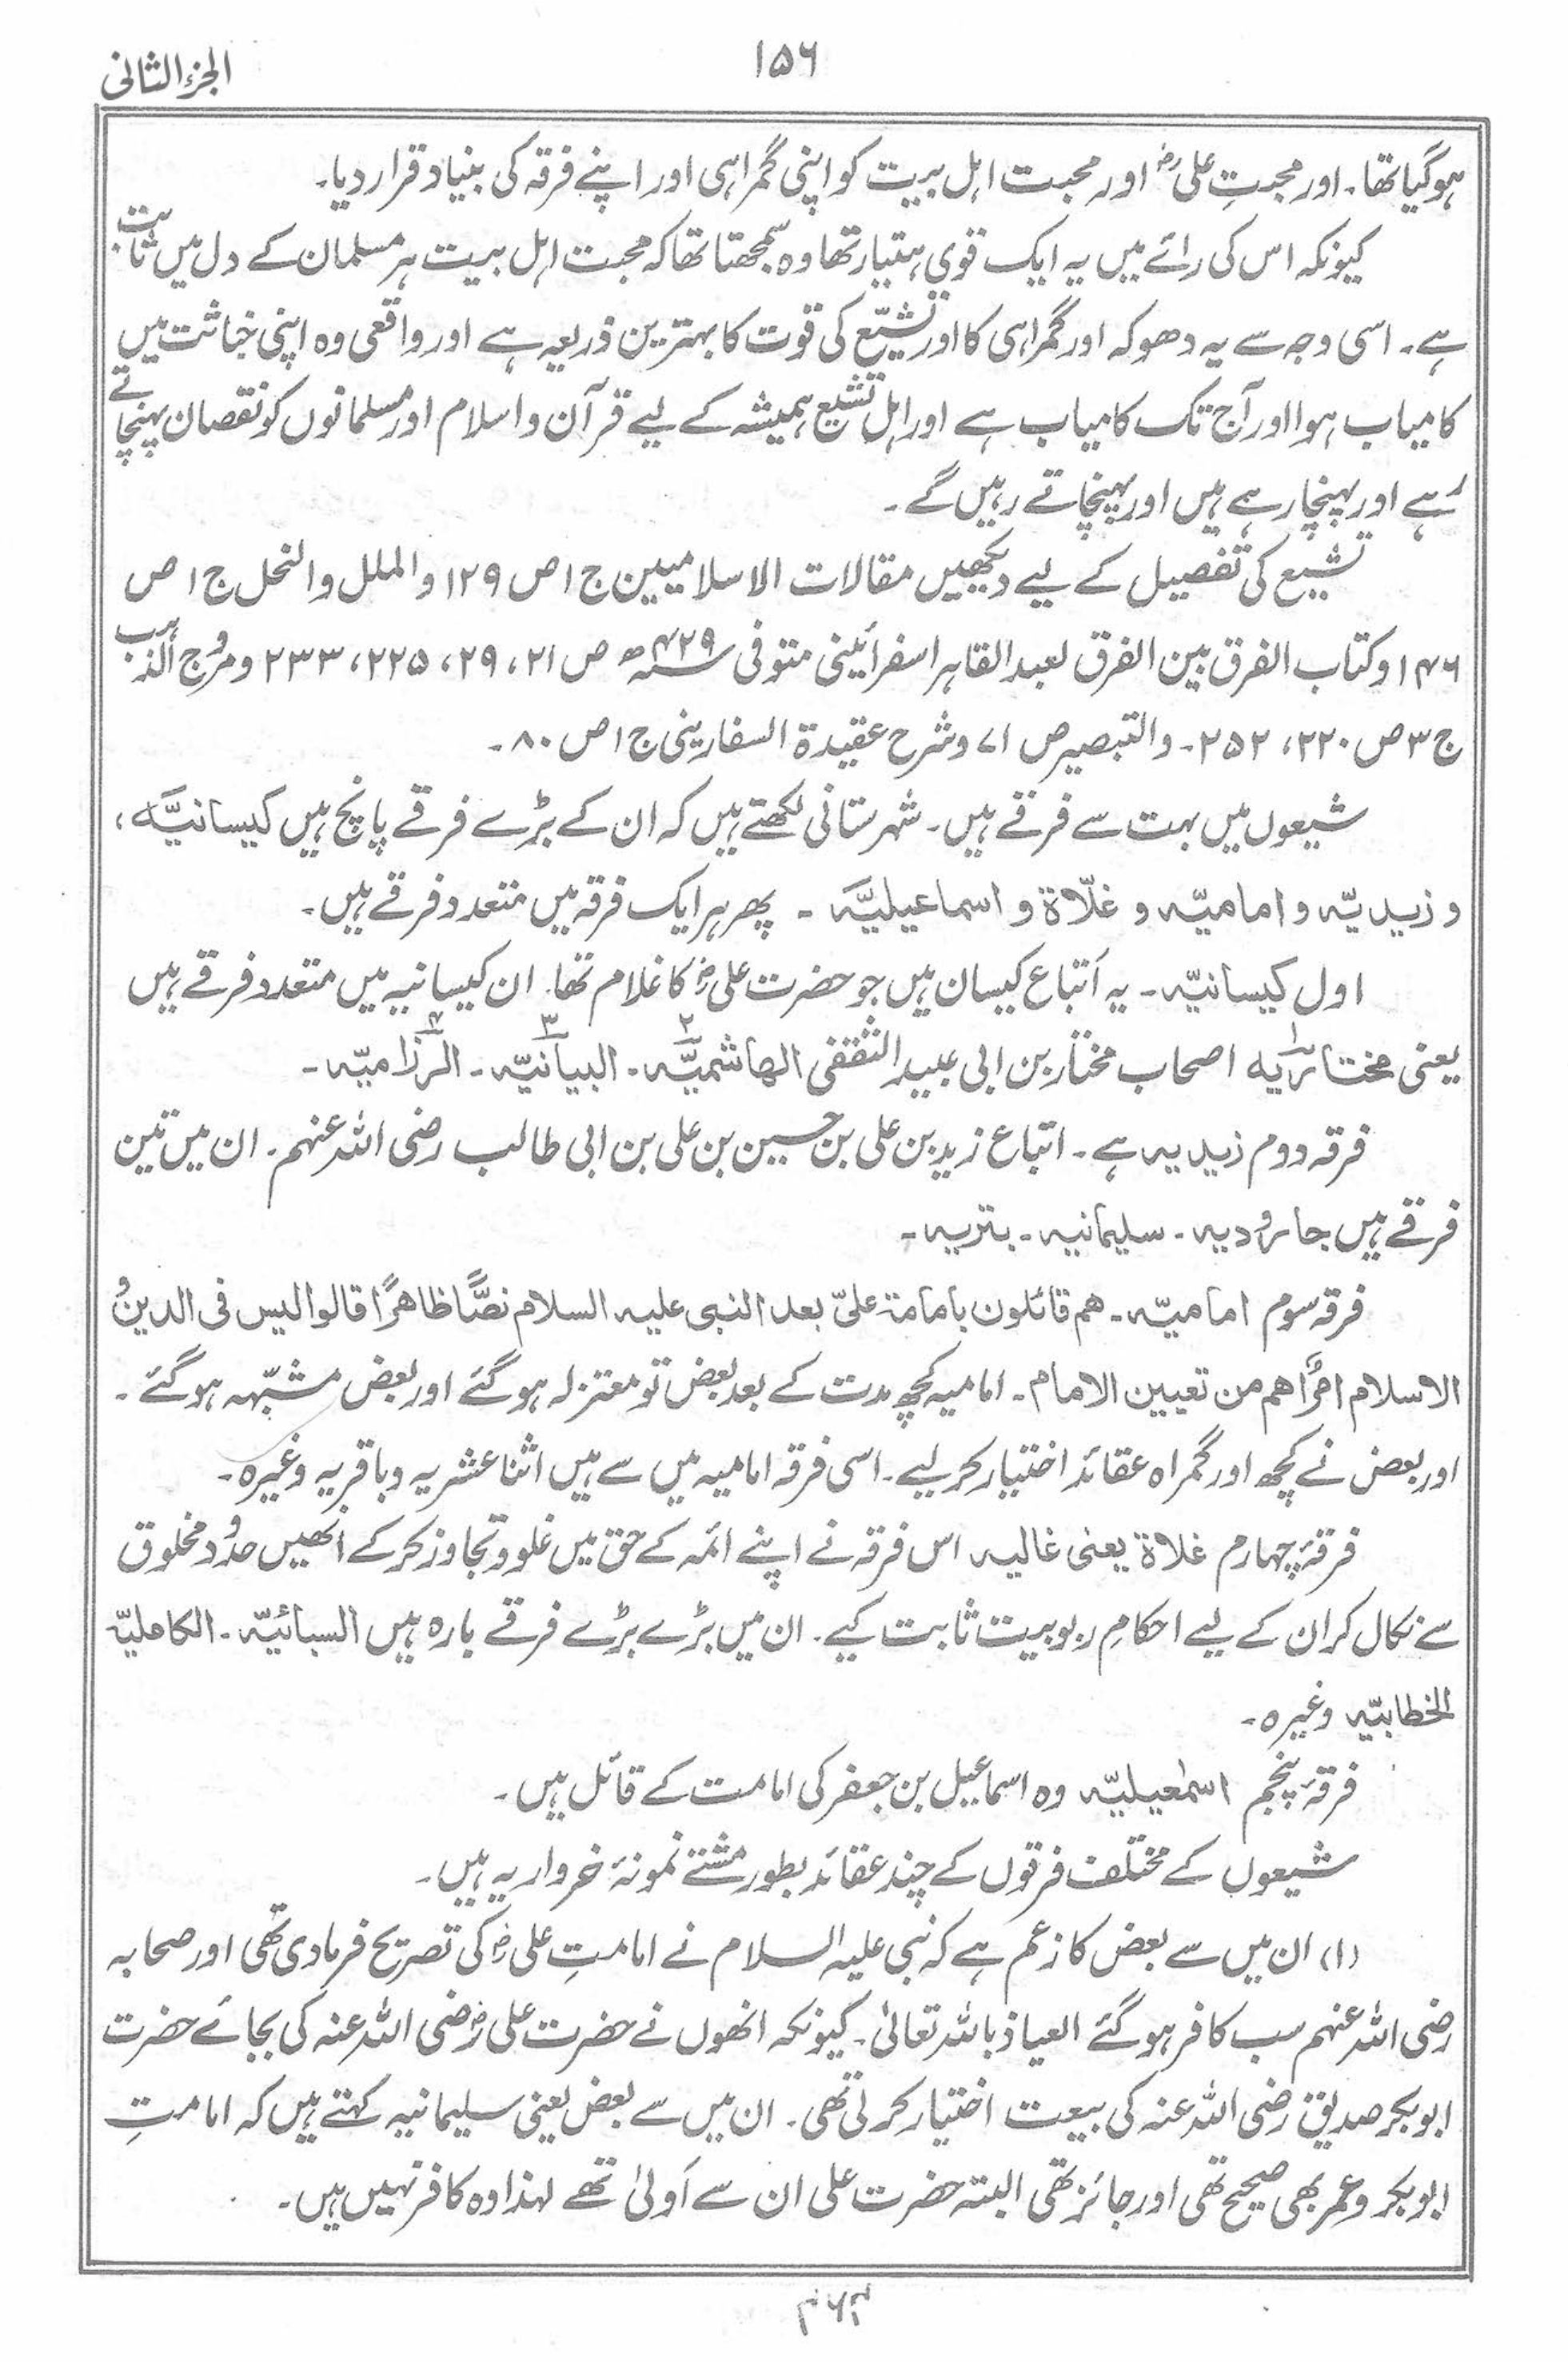 ۱۵۶
الجزء الثانی
ہوگیا تھا۔ اور محبتِ علیؓ اور محبت اہل بیت کو اپنی گمراہی اور اپنے فرقہ کی بنیاد قرار دیا۔
کیونکہ اس کی رائے میں یہ ایک قوی ہتیار تھا وہ سمجھتا تھا کہ محبت اہل بیت ہر مسلمان کے دل میں ثابت
ہے۔ اسی وجہ سے یہ دھوکہ اور گمراہی کا اور تشیّع کی قوت کا بہترین ذریعہ ہے اور واقعی وہ اپنی خباثت میں
کامیاب ہوا اور آج تک کامیاب ہے اور اہل تشیع ہمیشہ کے لیے قرآن و اسلام اور مسلمانوں کو نقصان پہنچاتے
رہے اور پہنچا رہے ہیں اور پہنچاتے رہیں گے۔
تشیع کی تفصیل کے لیے دیکھیں مقالات الاسلامیین ج ۱ ص ۱۲۹ و الملل والنحل ج ۱ ص
۱۴۶ و کتاب الفرق بین الفرق لعبد القاہر اسفرائینی متوفی ۴۲۹ھ ص ۲۱، ۲۹، ۲۲۵، ۲۳۳ و مروج الذہب
ج ۳ ص ۲۲۰، ۲۵۲۔ والتبصیر ص ۷۱ و شرح عقیدۃ السفارینی ج ۱ ص ۸۰۔
شیعوں میں بہت سے فرقے ہیں۔ شہرستانی لکھتے ہیں کہ ان کے بڑے فرقے پانچ ہیں کیسانیَّہ،
و زیدیّہ و امامیّہ و غلّاۃ و اسماعیلیَّہ ۔ پھر ہر ایک فرقہ میں متعدد فرقے ہیں۔
اول کیسانیّہ۔ یہ اَتباع کیسان ہیں جو حضرت علیؓ کا غلام تھا۔ ان کیسانیہ میں متعدد فرقے ہیں
یعنی مختاریہ۱ اصحاب مختار بن ابی عبید الثقفی الھاشمیَّہ۲۔ البیانیّہ۳۔ الرزامیّہ۴۔
فرقہ دوم زیدیہ ہے۔ اتباع زید بن علی بن حسین بن علی بن ابی طالب رضی اللہ عنہم۔ ان میں تین
فرقے ہیں جارودیہ۔ سلیمانیہ۔ بتریہ۔
فرقہ سوم امامیّہ۔ ھم قائلون بامامۃ علیّ بعد النبی علیہ السلام نصًّا ظاھرًا قالوا لیس فی الدین و
الاسلام امرٌ اھم من تعیین الامام۔ امامیہ کچھ مدت کے بعد بعض تو معتزلہ ہوگئے اور بعض مشبّہہ ہوگئے۔
اور بعض نے کچھ اور گمراہ عقائد اختیار کر لیے۔ اسی فرقہ امامیہ میں سے ہیں اثنا عشریہ و باقریہ وغیرہ۔
فرقۂ چہارم غلاۃ یعنی غالیہ اس فرقہ نے اپنے ائمہ کے حق میں غلو و تجاوز کر کے انھیں حدود مخلوق
سے نکال کر ان کے لیے احکامِ ربوبیت ثابت کیے۔ ان میں بڑے بڑے فرقے بارہ ہیں السبائیّہ۔ الکاملیّہ
الخطابیّہ وغیرہ۔
فرقۂ پنجم اسمٰعیلیّہ وہ اسماعیل بن جعفر کی امامت کے قائل ہیں۔
شیعوں کے مختلف فرقوں کے چند عقائد بطور مشتے نمونۂ خروار یہ ہیں۔
(۱) ان میں سے بعض کا زعم ہے کہ نبی علیہ السلام نے امامتِ علیؓ کی تصریح فرما دی تھی اور صحابہ
رضی اللہ عنہم سب کافر ہوگئے العیاذ باللہ تعالیٰ۔ کیونکہ انھوں نے حضرت علیؓ رضی اللہ عنہ کی بجائے حضرت
ابوبکر صدیق رضی اللہ عنہ کی بیعت اختیار کر لی تھی۔ ان میں سے بعض یعنی سلیمانیہ کہتے ہیں کہ امامتِ
ابوبکر و عمر بھی صحیح تھی اور جائز تھی البتہ حضرت علی ان سے اَولیٰ تھے لہذا وہ کافر نہیں ہیں۔